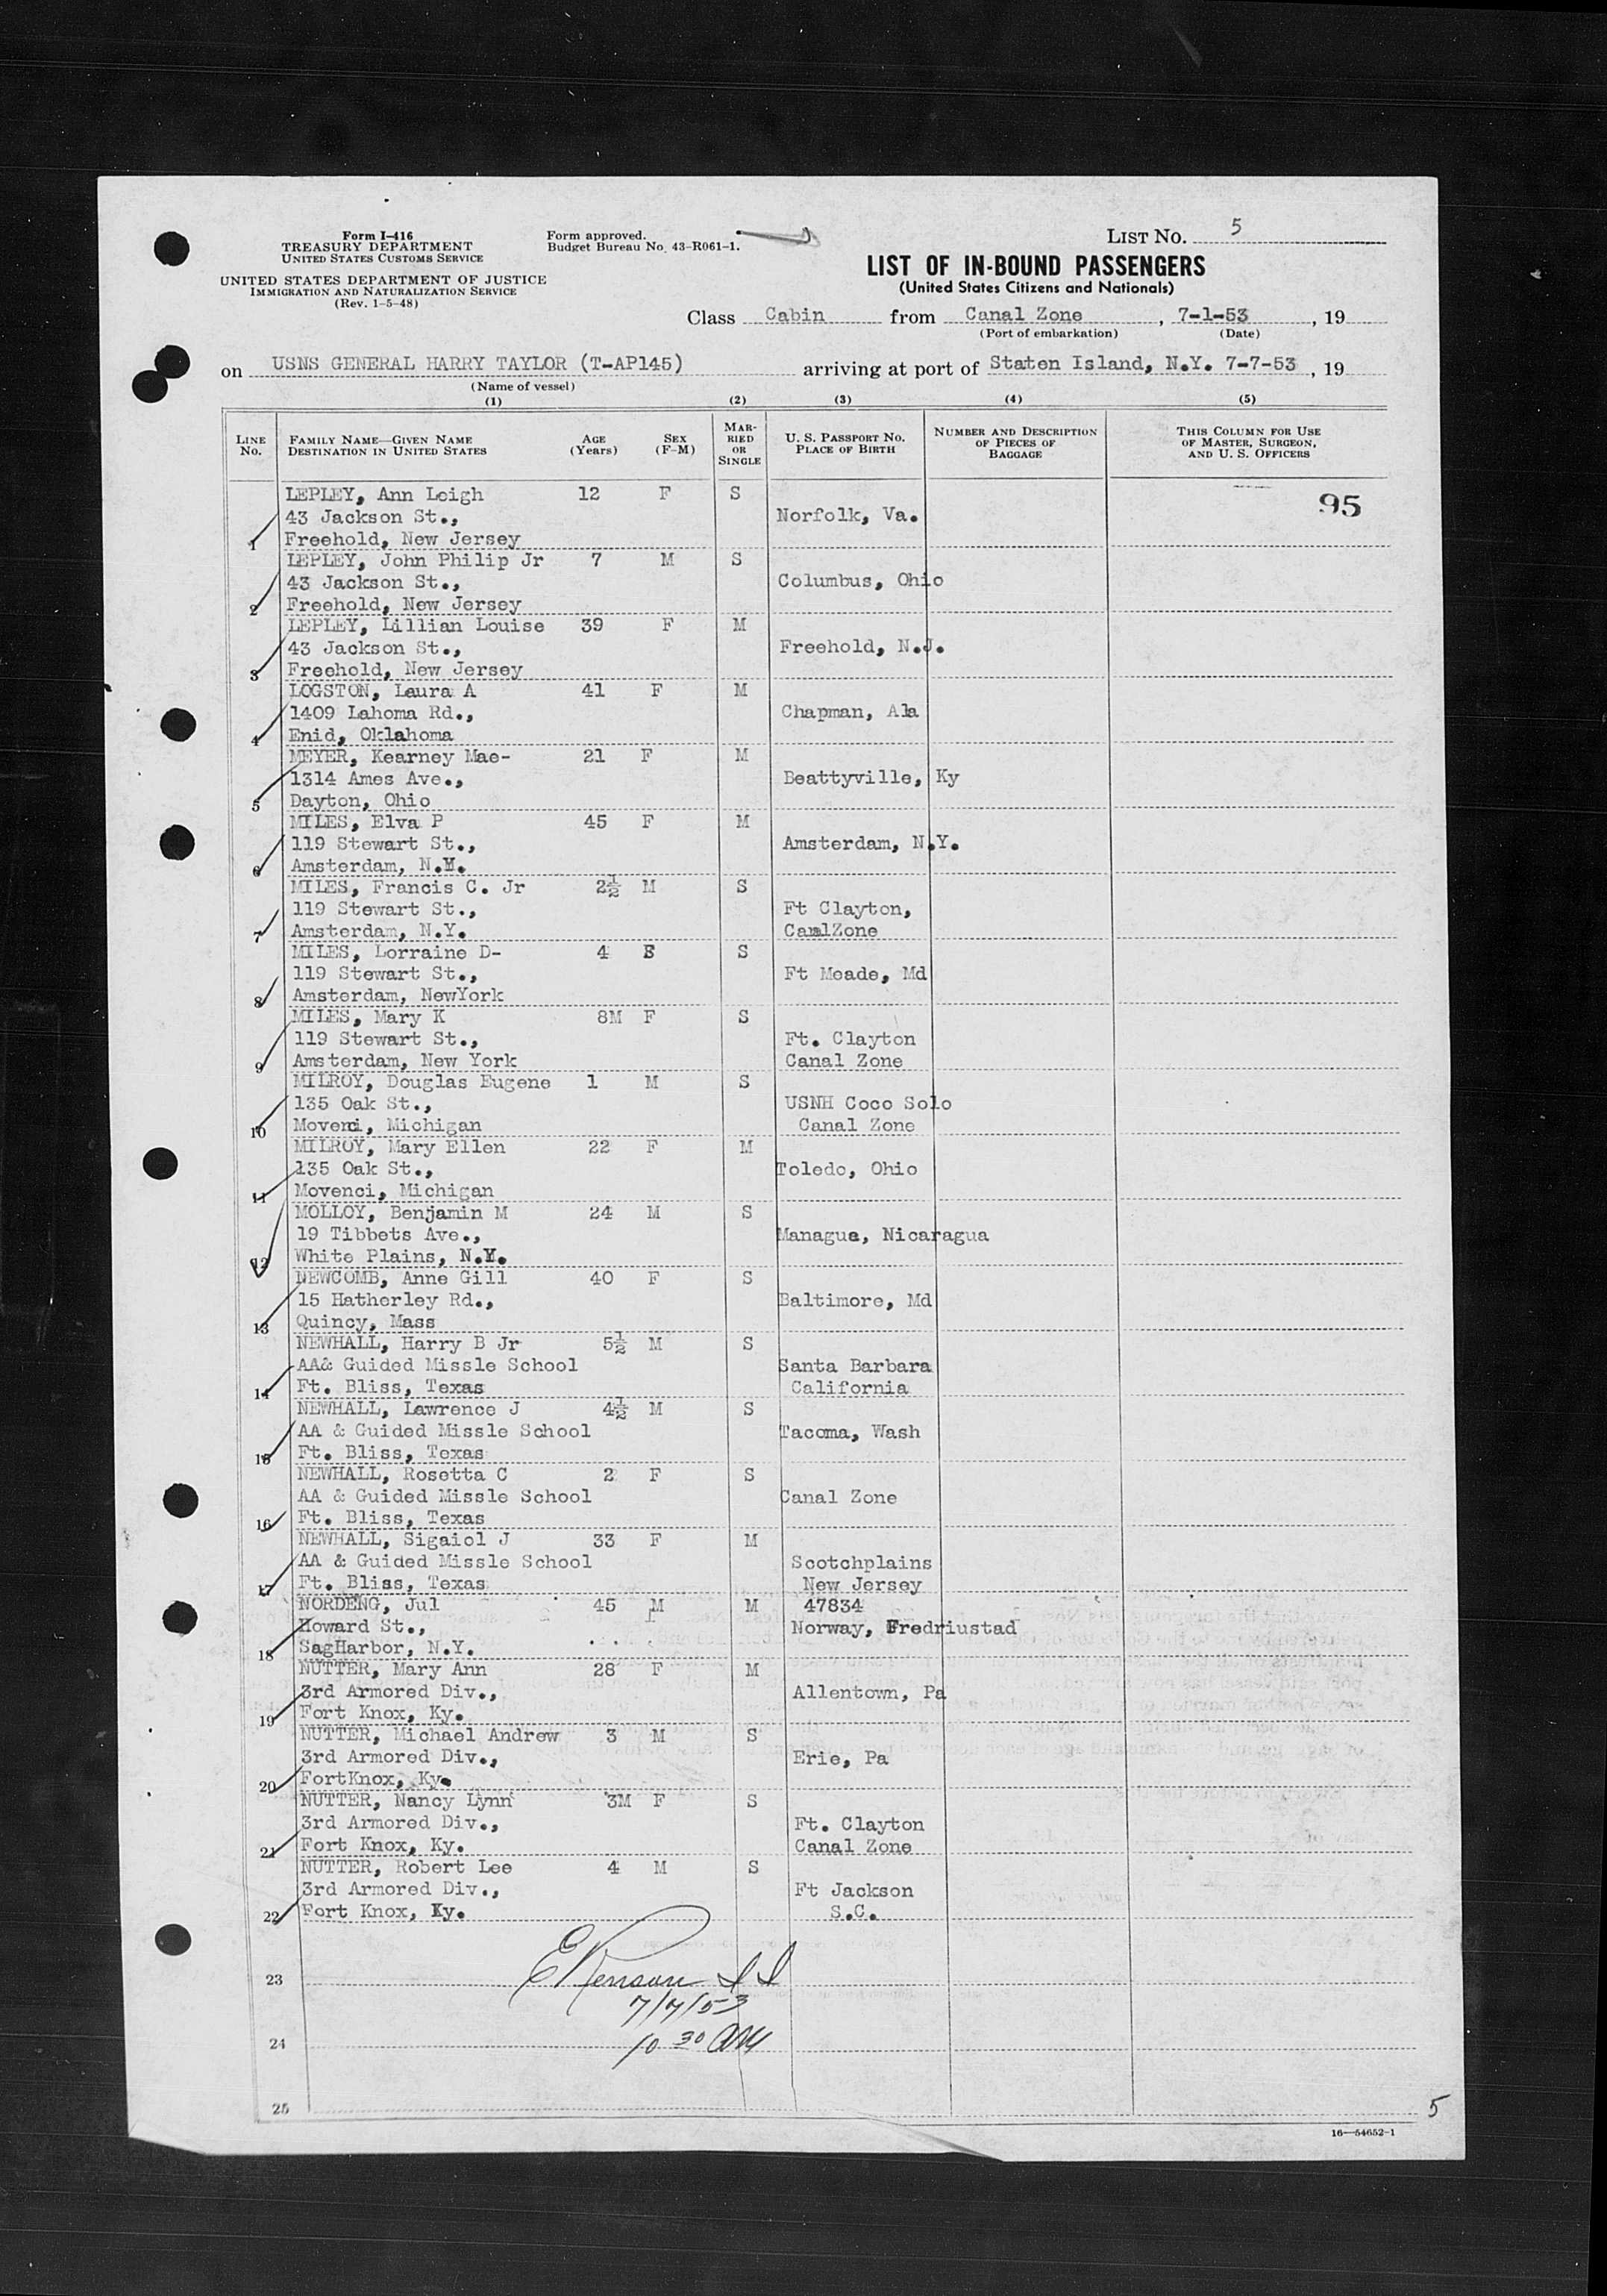 Form I-416
TREASURY DEPARTMENT
UNITED STATES CUSTOMS SERVICE
UNITED STATES DEPARTMENT OF JUSTICE
IMMIGRATION AND NATURALIZATION SERVICE
(Rev. 1-5-48)
Form approved.
Budget Bureau No. 43-R061-1.
LIST NO. 5
LIST OF IN-BOUND PASSENGERS
(United States Citizens and Nationals)
Class Cabin from Canal Zone , 7-1-53 , 19
(Port of embarkation) (Date)
on USNS GENERAL HARRY TAYLOR (T-AP145) arriving at port of Staten Island, N.Y. 7-7-53 , 19
(Name of vessel)
(1) (2) (3) (4) (5)
LINE NO. FAMILY NAME—GIVEN NAME DESTINATION IN UNITED STATES AGE (Years) SEX (F-M) MARRIED OR SINGLE U. S. PASSPORT NO. PLACE OF BIRTH NUMBER AND DESCRIPTION OF PIECES OF BAGGAGE THIS COLUMN FOR USE OF MASTER, SURGEON, AND U. S. OFFICERS
LEPLEY, Ann Leigh 12 F S 95
43 Jackson St., Norfolk, Va.
1 Freehold, New Jersey
LEPLEY, John Philip Jr 7 M S
43 Jackson St., Columbus, Ohio
2 Freehold, New Jersey
LEPLEY, Lillian Louise 39 F M
43 Jackson St., Freehold, N.J.
3 Freehold, New Jersey
LOGSTON, Laura A 41 F M
1409 Lahoma Rd., Chapman, Ala
4 Enid, Oklahoma
MEYER, Kearney Mae- 21 F M
1314 Ames Ave., Beattyville, Ky
5 Dayton, Ohio
MILES, Elva P 45 F M
119 Stewart St., Amsterdam, N.Y.
6 Amsterdam, N.Y.
MILES, Francis C. Jr 2½ M S
119 Stewart St., Ft Clayton,
7 Amsterdam, N.Y. CanalZone
MILES, Lorraine D- 4 S
119 Stewart St., Ft Meade, Md
8 Amsterdam, NewYork
MILES, Mary K 8M F S
119 Stewart St., Ft. Clayton
9 Amsterdam, New York Canal Zone
MILROY, Douglas Eugene 1 M S
135 Oak St., USNH Coco Solo
10 Movenci, Michigan Canal Zone
MILROY, Mary Ellen 22 F M
135 Oak St., Toledo, Ohio
11 Movenci, Michigan
MOLLOY, Benjamin M 24 M S
19 Tibbets Ave., Managua, Nicaragua
12 White Plains, N.Y.
NEWCOMB, Anne Gill 40 F S
15 Hatherley Rd., Baltimore, Md
13 Quincy, Mass
NEWHALL, Harry B Jr 5½ M S
AA& Guided Missle School Santa Barbara
14 Ft. Bliss, Texas California
NEWHALL, Lawrence J 4½ M S
AA & Guided Missle School Tacoma, Wash
15 Ft. Bliss, Texas
NEWHALL, Rosetta C 2 F S
AA & Guided Missle School Canal Zone
16 Ft. Bliss, Texas
NEWHALL, Sigaiol J 33 F M
AA & Guided Missle School Scotchplains
17 Ft. Bliss, Texas New Jersey
NORDENG, Jul 45 M M 47834
Howard St., Norway, Fredriustad
18 SagHarbor, N.Y.
NUTTER, Mary Ann 28 F M
3rd Armored Div., Allentown, Pa
19 Fort Knox, Ky.
NUTTER, Michael Andrew 3 M S
3rd Armored Div., Erie, Pa
20 FortKnox, Ky.
NUTTER, Nancy Lynn 3M F S
3rd Armored Div., Ft. Clayton
21 Fort Knox, Ky. Canal Zone
NUTTER, Robert Lee 4 M S
3rd Armored Div., Ft Jackson
22 Fort Knox, Ky. S.C.
23
7/7/53
24 10 30 AM
25
5
16—54652-1